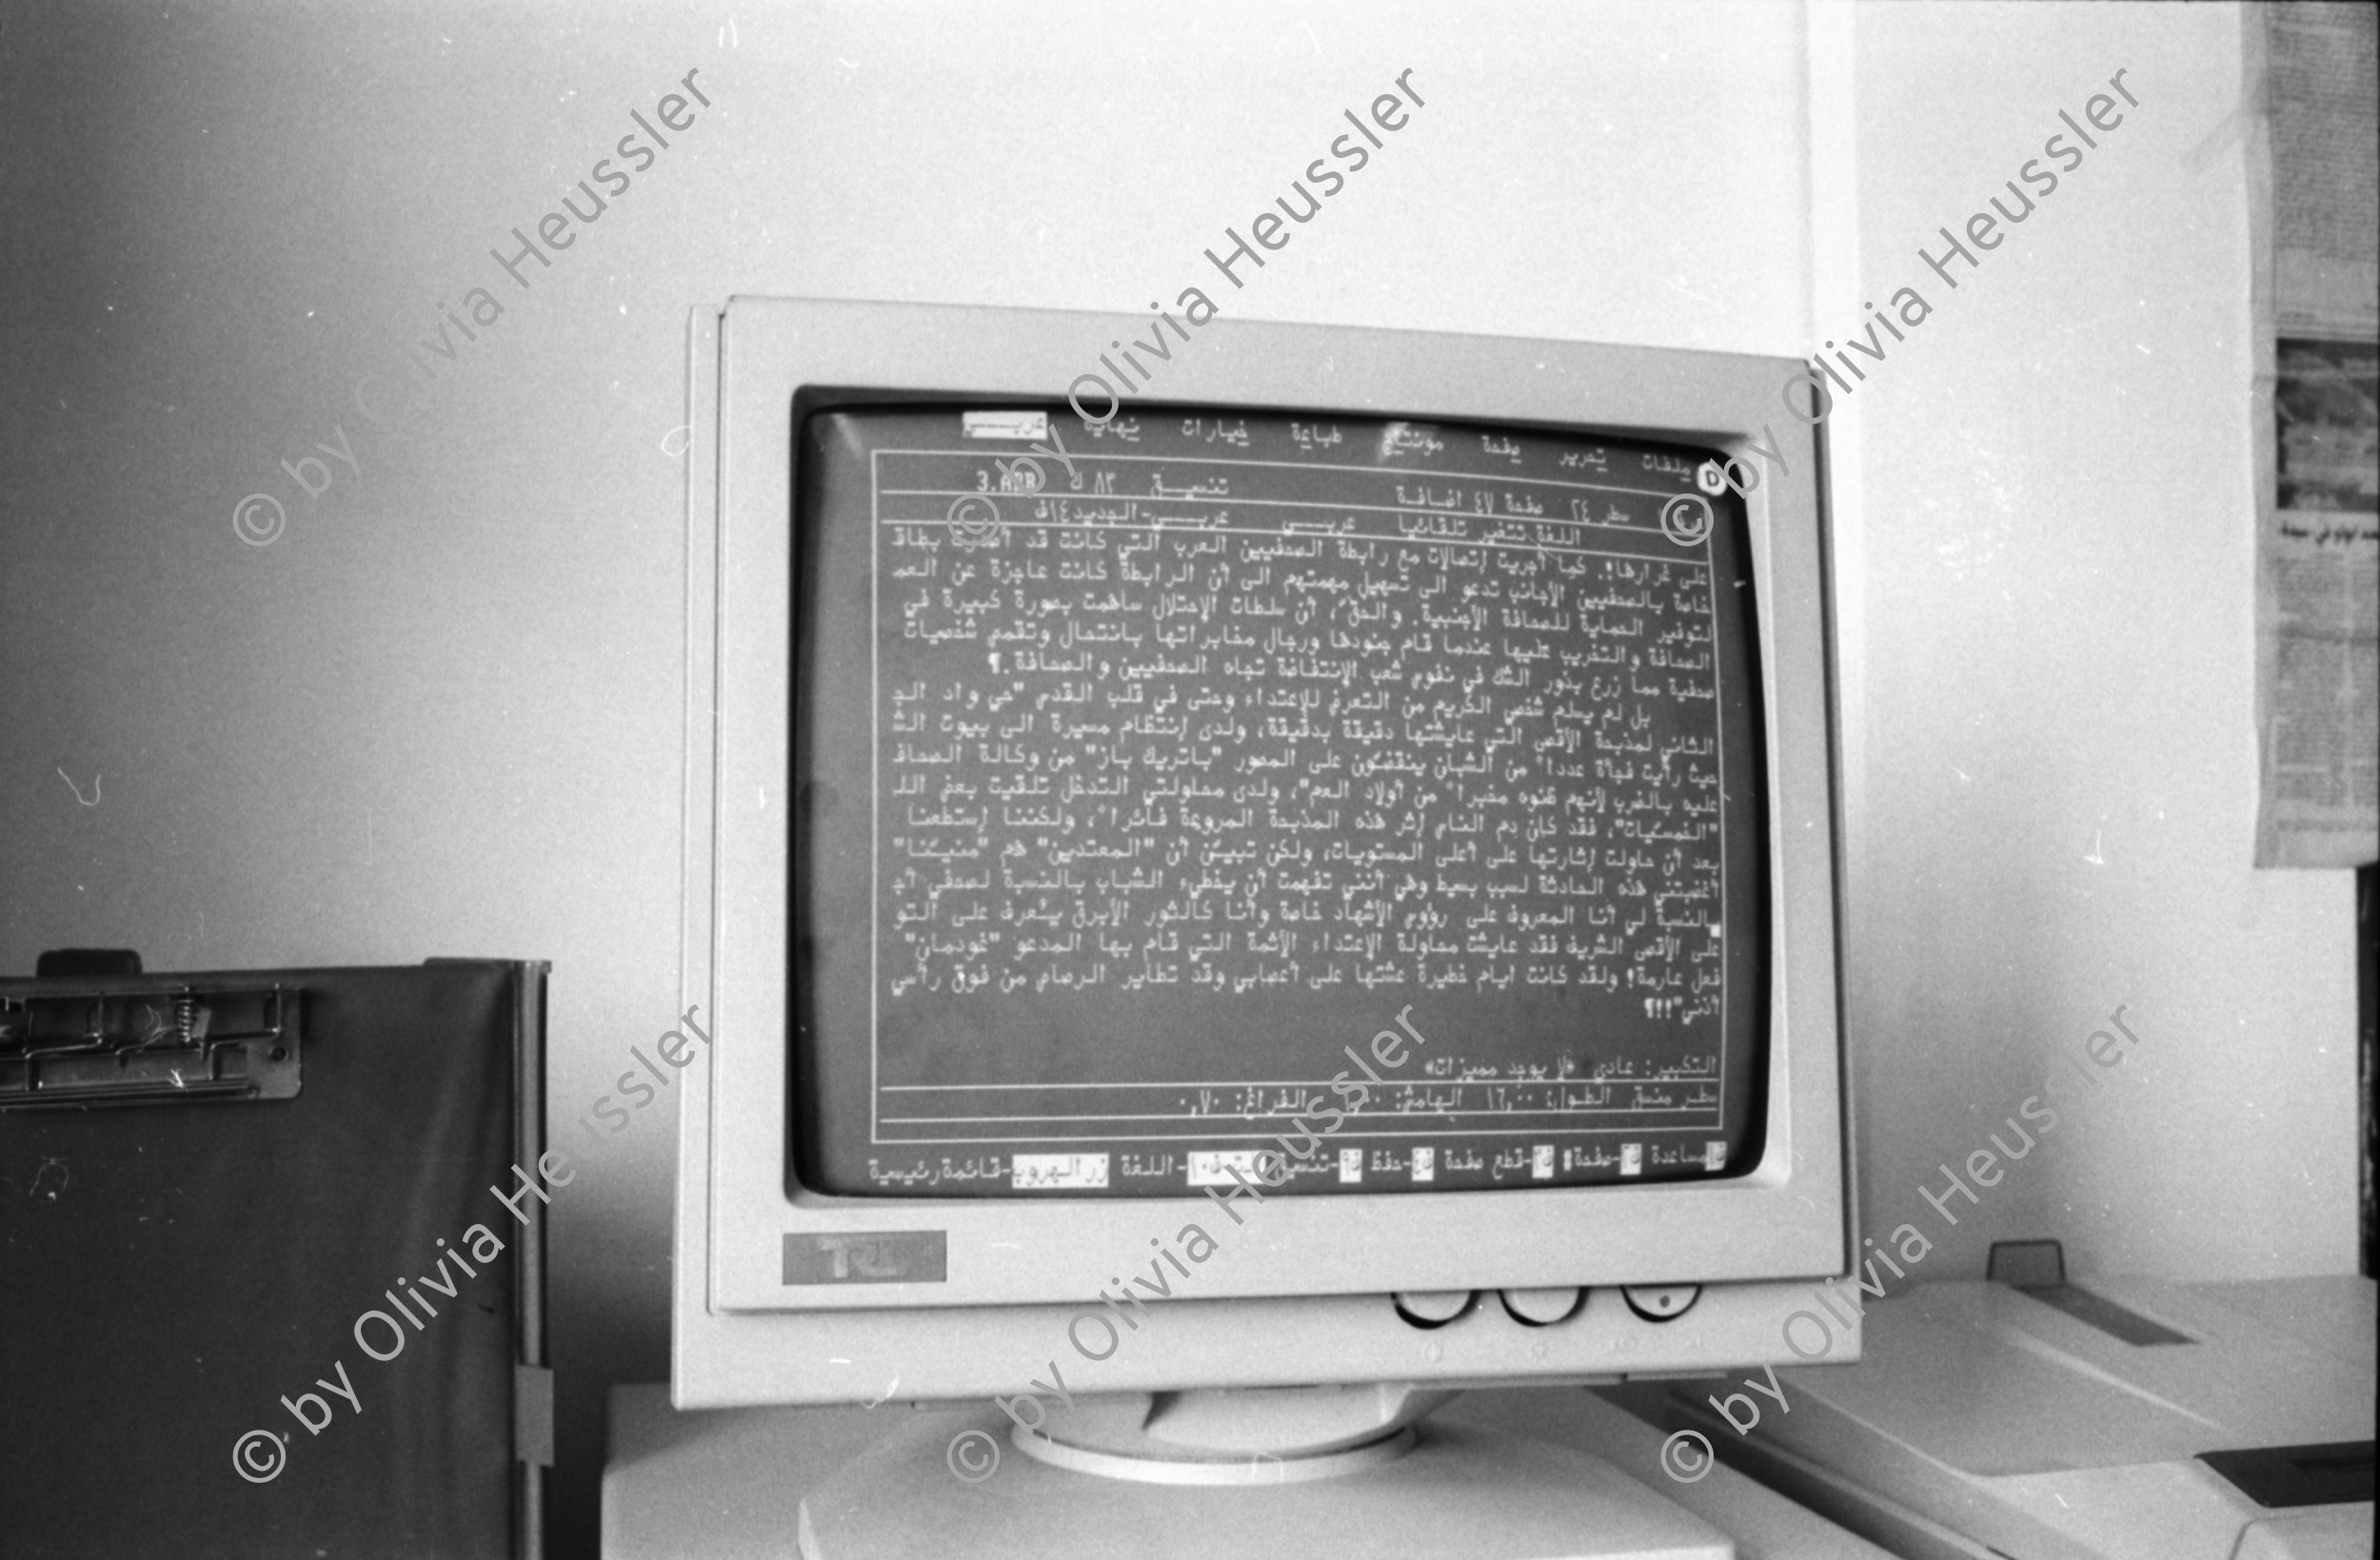 ملفات تحرير صفحة مونتاج طباعة خيارات نهاية عربـــي
D
سطر ٢٤ صفحة ٤٧ اضافة تنسيـق ٨٣ ك 3.ARB
اللغة تتغير تلقائيا عربـــي عربـــي-الجديد١٤ف
على غرارها!. كما أجريت إتصالات مع رابطة الصحفيين العرب التي كانت قد أصدرت بطاق
خاصة بالصحفيين الأجانب تدعو الى تسهيل مهمتهم الى أن الرابطة كانت عاجزة عن العم
لتوفير الحماية للصحافة الأجنبية. والحق، أن سلطات الإحتلال ساهمت بصورة كبيرة في
الصحافة والتخريب عليها عندما قام جنودها ورجال مخابراتها بانتحال وتقمص شخصيات
صحفية مما زرع بذور الشك في نفوس شعب الإنتفاضة تجاه الصحفيين والصحافة.¶
بل لم يسلم شخصي الكريم من التعرض للإعتداء وحتى في قلب القدس "حي واد الج
الثاني لمذبحة الأقصى التي عايشتها دقيقة بدقيقة، ولدى إنتظام مسيرة الى بيوت الش
حيث رأيت فجأة عدداً من الشبان ينقضّون على المصور "باتريك باز" من وكالة الصحاف
عليه بالضرب لأنهم ظنوه مخبراً من "أولاد العم"، ولدى محاولتي التدخل تلقيت بعض الل
"الخمسيات"، فقد كان دم الناس إثر هذه المذبحة المروعة فائراً، ولكننا إستطعنا
بعد أن حاولت إثارتها على أعلى المستويات، ولكن تبيّن أن "المعتدين" هم "منيّنا"
أغضبتني هذه الحادثة لسبب بسيط وهي أنني تفهمت أن يخطيء الشباب بالنسبة لصحفي أج
بالنسبة لي أنا المعروف على رؤوس الأشهاد خاصة وأنا كالثور الأبرق يتّعرف على التو
على الأقصى الشريف فقد عايشت محاولة الإعتداء الأثمة التي قام بها المدعو "غودمان"
فعل عارمة! ولقد كانت ايام خطيرة عشتها على أعصابي وقد تطاير الرصاص من فوق رأسي
أذني"!!¶
التكبير: عادي «لا يوجد مميزات»
سطر منسق الطول: ١٦,٠٠ الهامش: الفراغ: ٠,٧٠
مساعدة ف٢-صفحة ف٣-قطع صفحة ف٤-حفظ ف٩-تنسيق ف١٠-اللغة زر الهروب-قائمة رئيسية
TJ
© by Olivia Heussler
© by Olivia Heussler
© by Olivia Heussler
© by Olivia Heussler
© by Olivia Heussler
© by Olivia Heussler